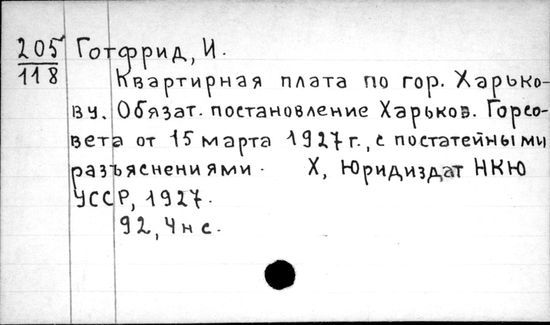 205 Готфрид, И.
118
Квартирная плата по гор. Харько-
ву. Обязат. постановление Харьков. Горсо-
вета от 15 марта 1927 г., с постатейными
разъяснениями. Х, Юридиздат НКЮ
УССР, 1927.
92, 4 н с.